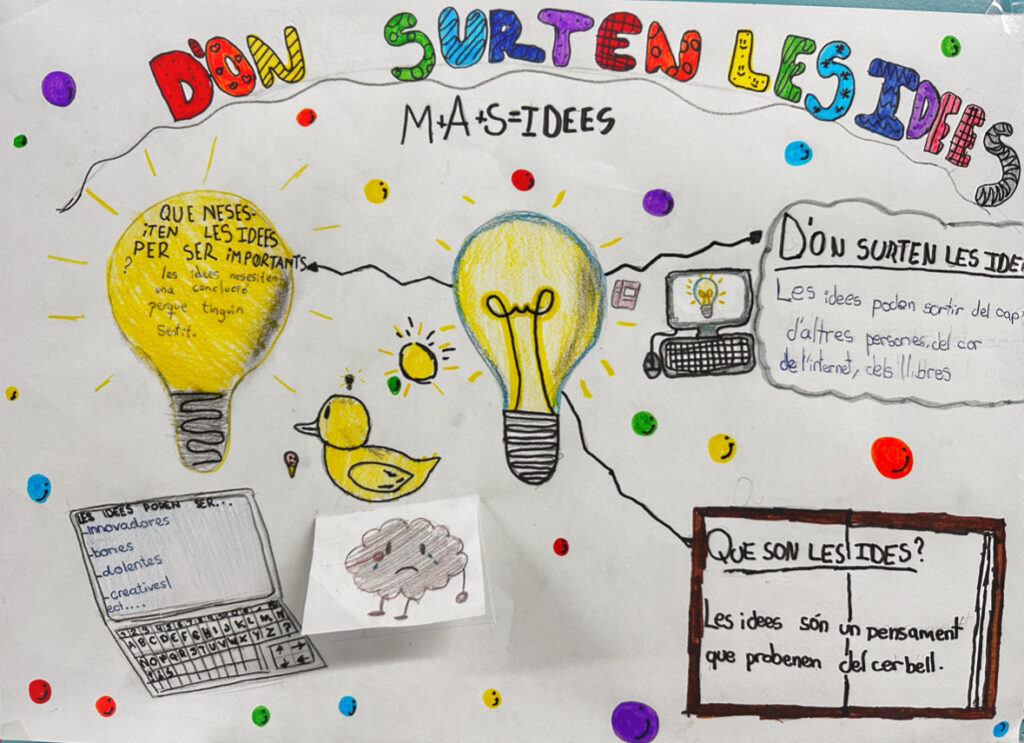 D'ON SURTEN LES IDEES
M+A+S=IDEES
QUE NESES-
iTEN LES IDEES
PER SER iMPORTANTS
?
les idees nesesiten
una conclucró
perque tinguin
Sutit.
D'ON SURTEN LES IDE
Les idees poden sortir del cap,
d'altres persones, del cor
de l'internet, dels llibres
LES IDEES PODEN SER...
-innovadores
-bones
-dolentes
-creatives
ect....
A B C D E F G H I J K L M
N O P Q R S T U V W X Y Z ?
QUE SON LES IDES?
Les idees són un pensament
que probenen del cerbell.